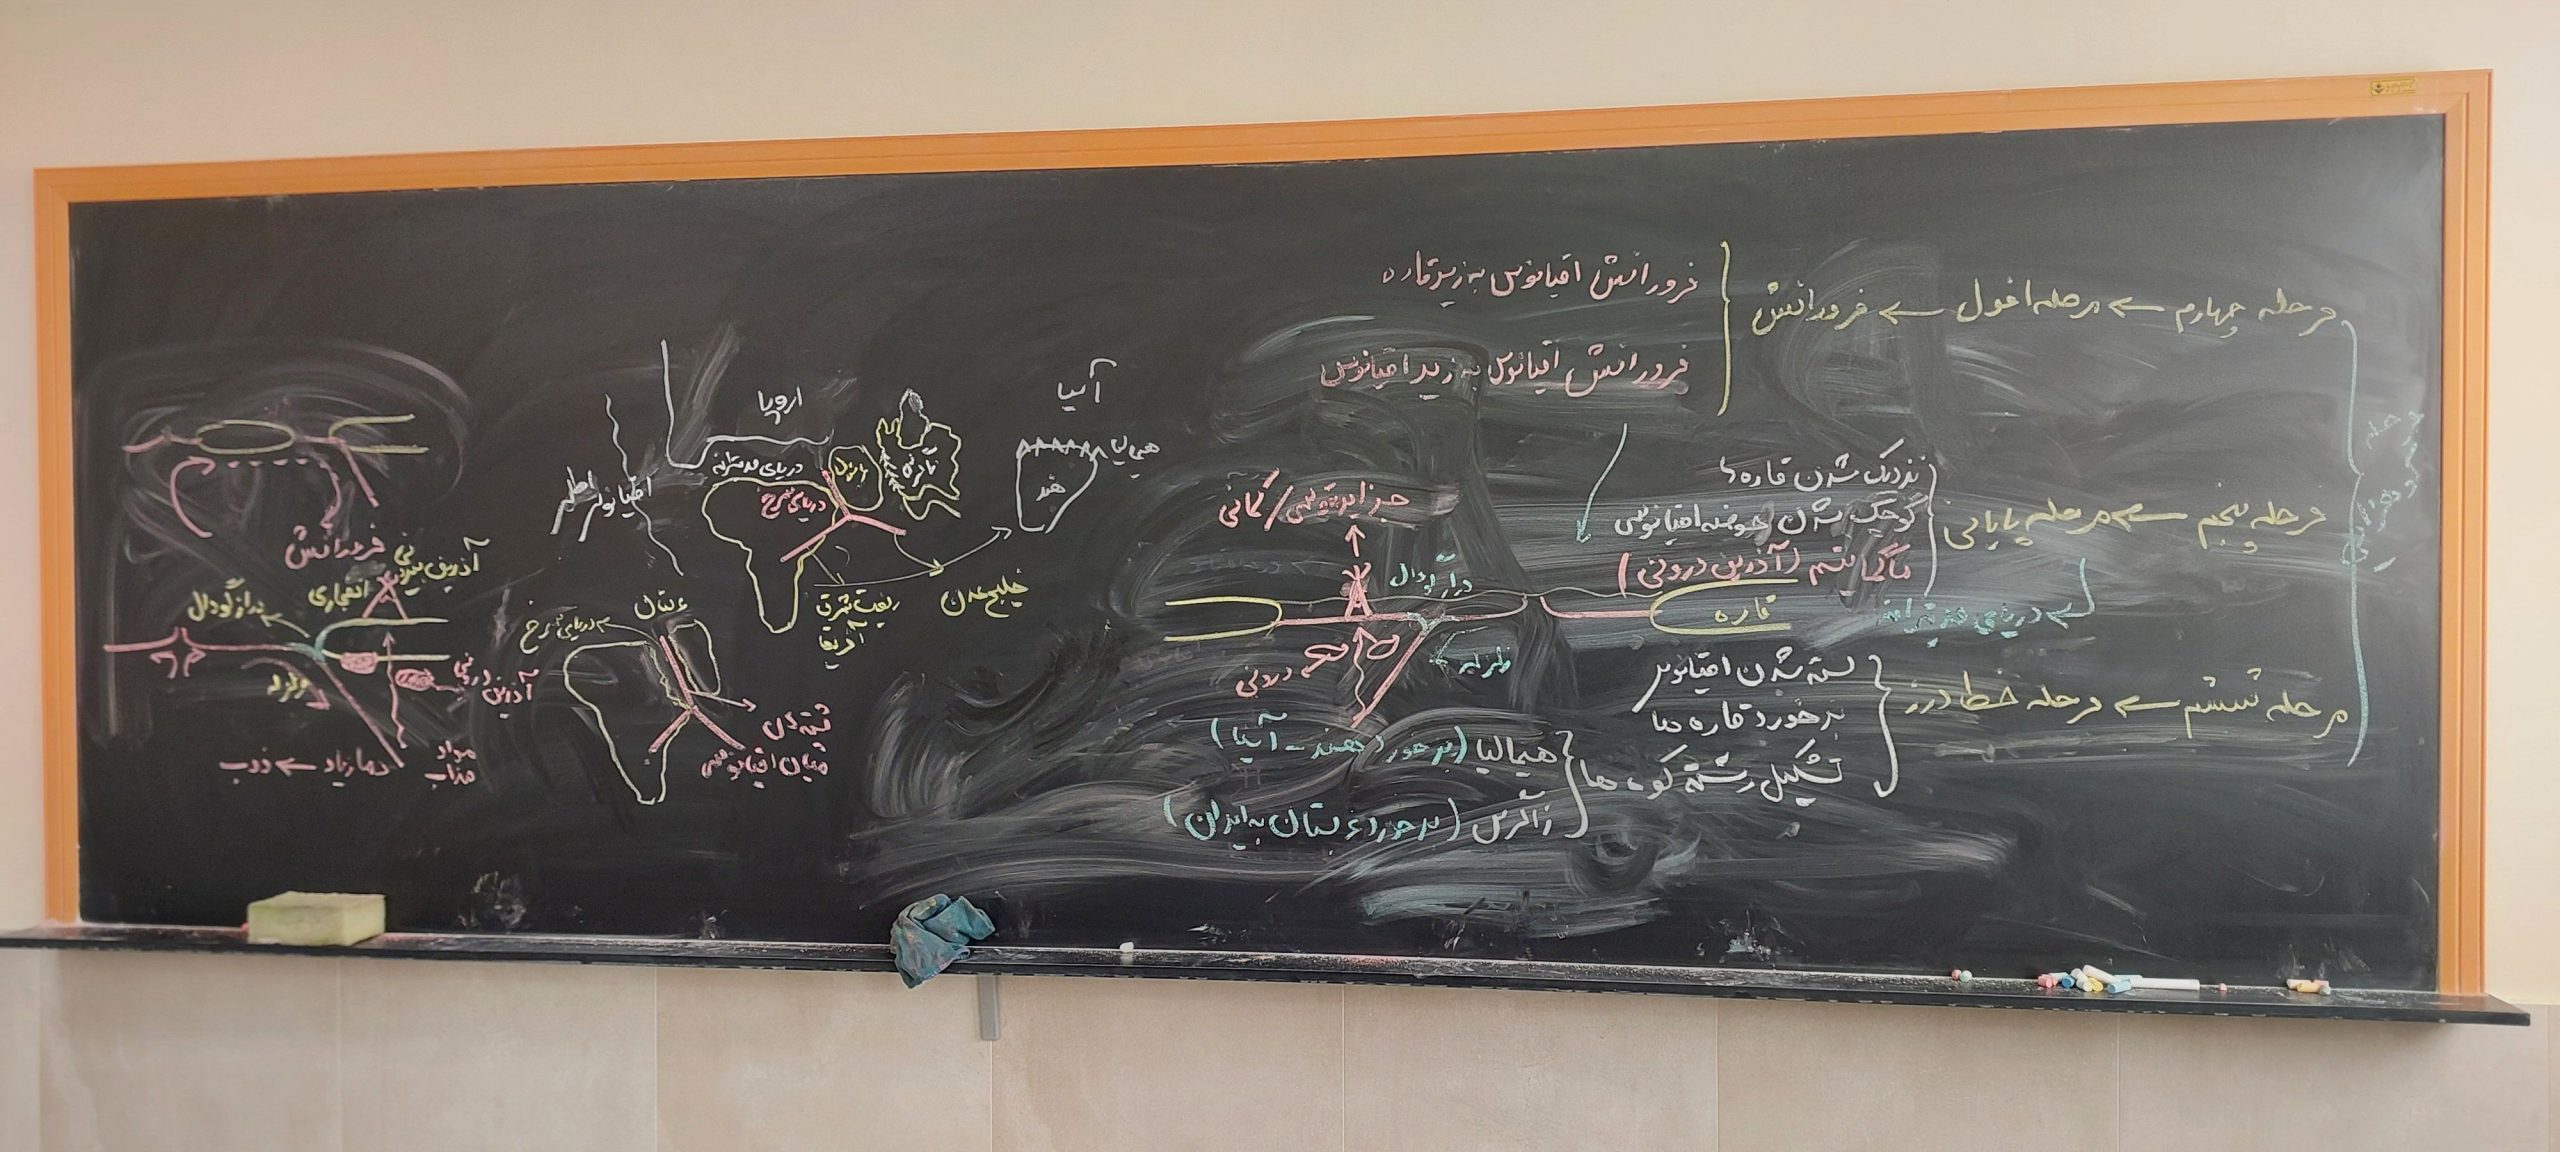 مرحله چهارم ← مرحله افول ← فرورانش
فرورانش اقیانوس به زیر قاره
فرورانش اقیانوس به زیر اقیانوس
مرحله پنجم ← مرحله پایانی
نزدیک شدن قاره‌ها
کوچک شدن حوضه اقیانوسی
ماگماتیسم (آذرین درونی)
← دریای مدیترانه
مرحله ششم ← مرحله خط درز
بسته شدن اقیانوس
برخورد قاره ها
تشکیل رشته کوه ها
هیمالیا (برخورد هند - آسیا)
زاگرس (برخورد عربستان به ایران)
جزایر قوسی / کمانی
درازگودال
قاره
زلزله
درونی
آسیا
هیمالیا
هند
اروپا
دریای مدیترانه
دریای سرخ
اقیانوس اطلس
خلیج عدن
ریفت شرق
آفریقا
عربستان
دریای سرخ
میان اقیانوسی
فرورانش
آذرین بیرونی
انفجاری
درازگودال
زلزله
آذرین درونی
مواد
مذاب
دما زیاد ← ذوب